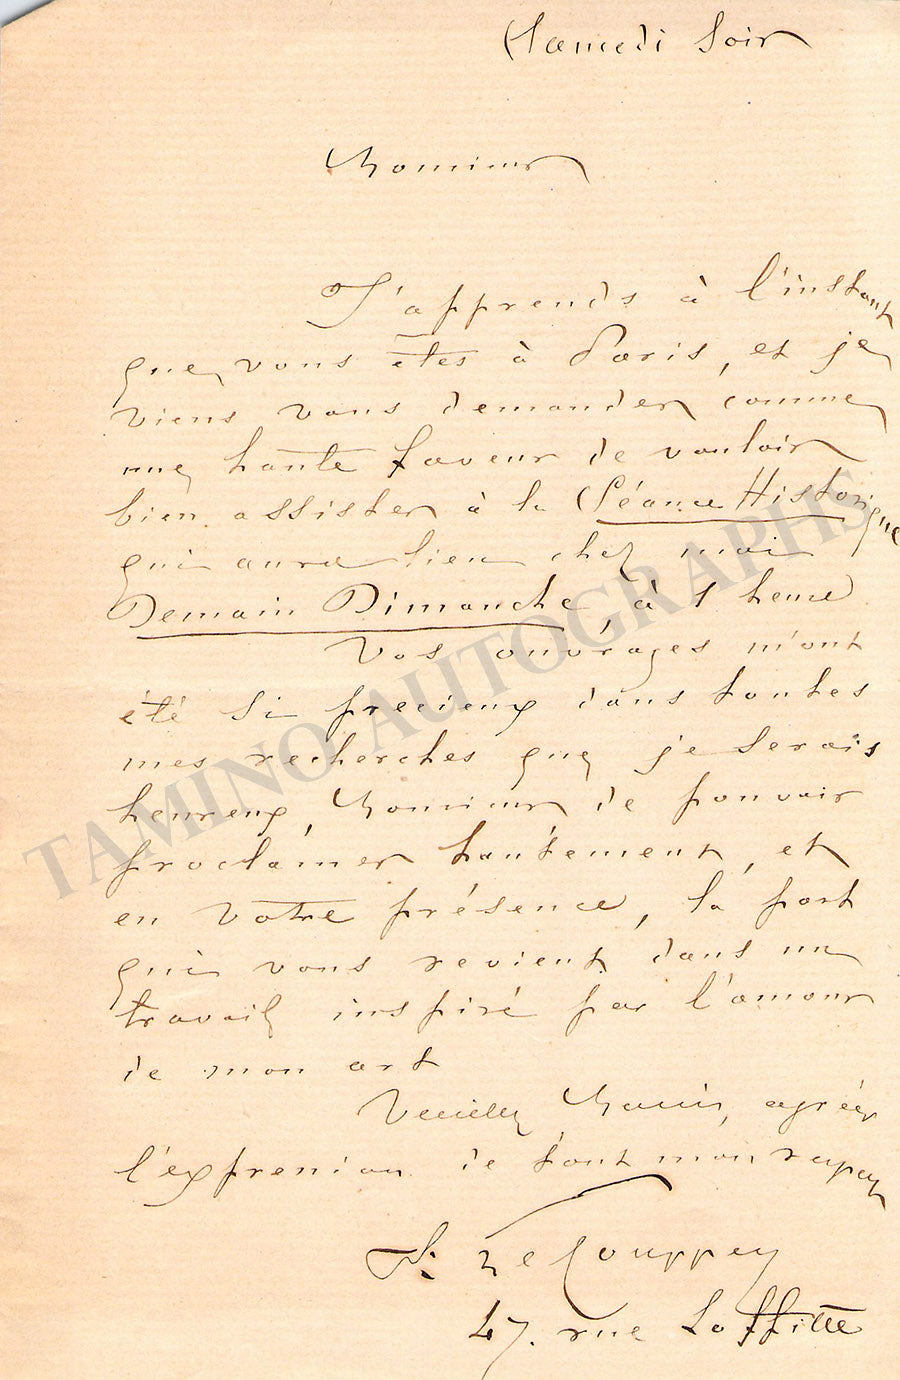 Samedi Soir
Monsieur
J'apprends à l'instant
que vous êtes à Paris, et je
viens vous demander comme
une haute faveur de vouloir
bien assister à la Séance Historique
qui aura lieu chez moi
Demain Dimanche, à 1 heure
Vos ouvrages m'ont
été si precieux dans toutes
mes recherches que je serais
heureux, Monsieur de pouvoir
proclamer hautement, et
en votre présence, la part
qui vous revient dans un
travail inspiré par l'amour
de mon art
Veuillez, Monsieur, agréer
l'expression de tout mon respect
F. Le Couppey
47. rue Laffitte
TAMINO AUTOGRAPHS